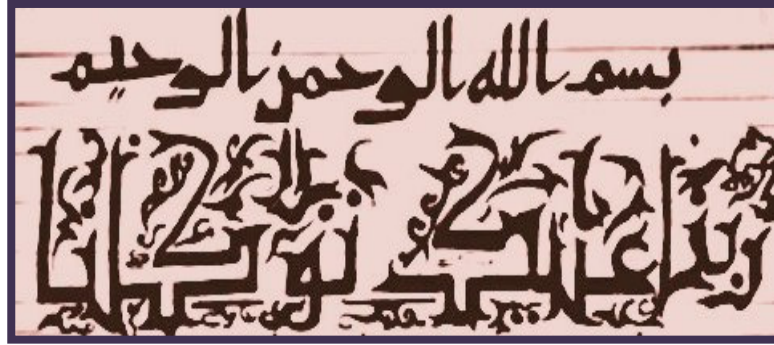 بسم الله الرحمن الرحيم
ربنا عليك توكلنا